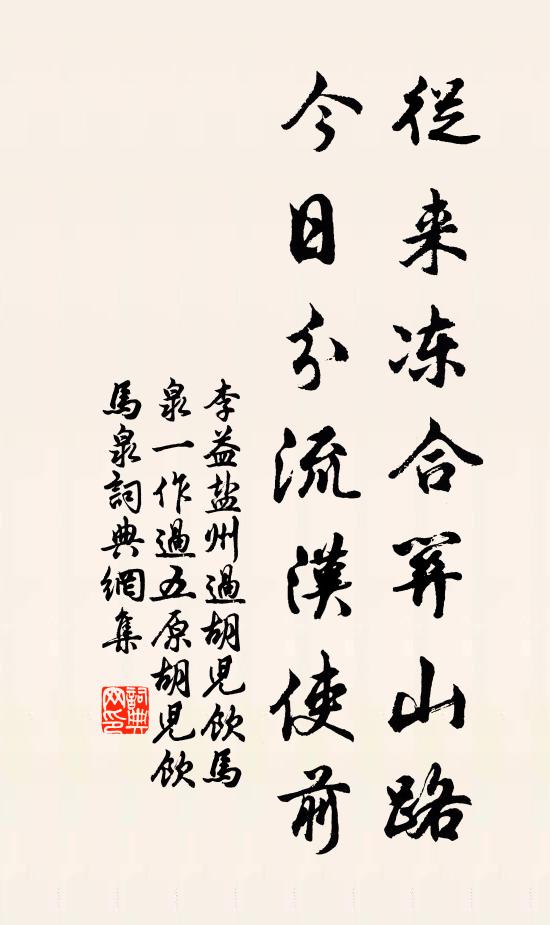 從来冻合関山路
今日分流漢使前
李益盐州過胡児飲馬
泉一作過五原胡児飲
馬泉詞典網集
詞典
网印